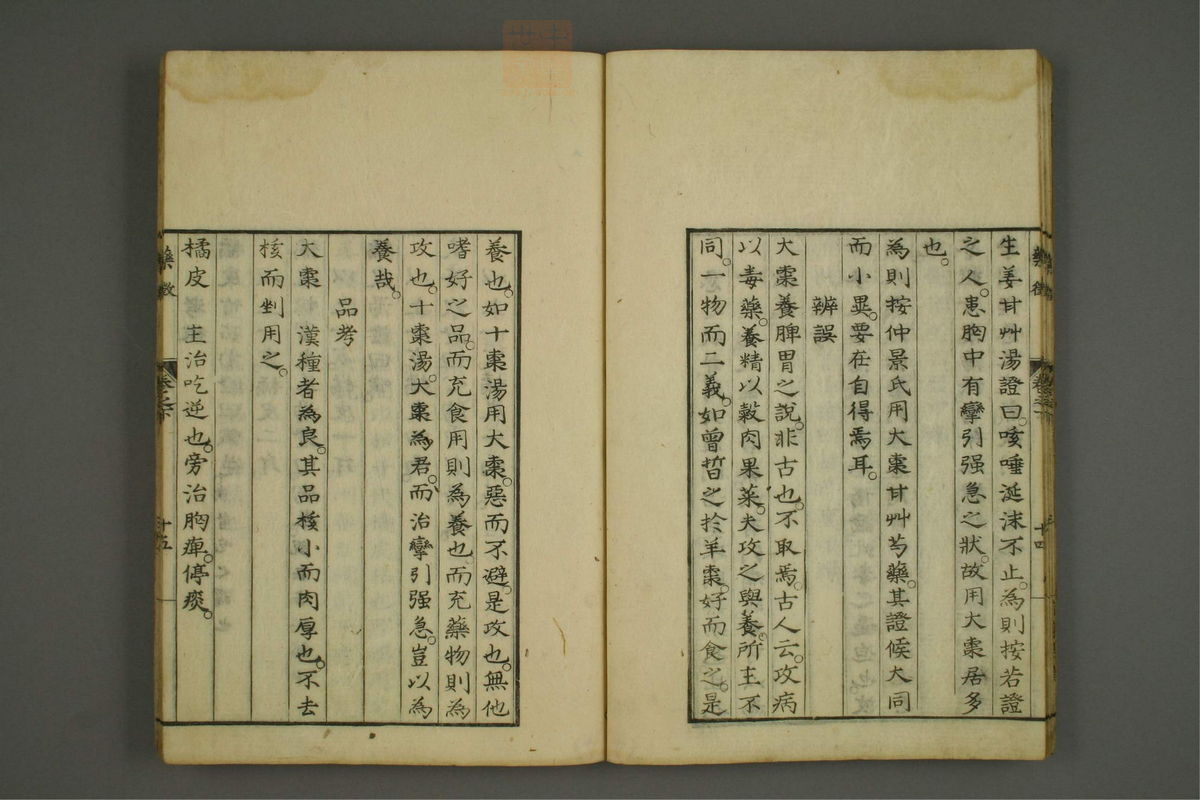 生姜甘艸湯證曰。咳唾涎沫不止。為則按若證
之人。患胸中有攣引强急之狀。故用大棗居多
也。
為則按仲景氏用大棗甘艸芍藥。其證候大同
而小異。要在自得焉耳。
辨誤
大棗養脾胃之說。非古也。不取焉。古人云。攻病
以毒藥。養精以穀肉果菜。夫攻之與養。所主不
同。一物而二義。如曾晳之於羊棗。好而食之。是
養也。如十棗湯用大棗。惡而不避。是攻也。無他
嗜好之品。而充食用則為養也。而充藥物則為
攻也。十棗湯。大棗為君。而治攣引强急。豈以為
養哉。
品考
大棗 漢種者為良。其品核小而肉厚也。不去
核而剉用之。
橘皮 主治吃逆也。旁治胸痺。停痰。